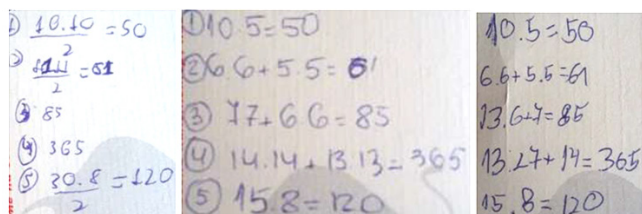 ① 10.10/2 = 50
② 11.11/2 = 61
③ 85
④ 365
⑤ 30.8/2 = 120
① 10.5=50
② 6.6+5.5=61
③ 17+66=85
④ 14.14+13.13=365
⑤ 15.8=120
10.5=50
6.6+5.5=61
13.6+7=85
13.27+14=365
15.8=120